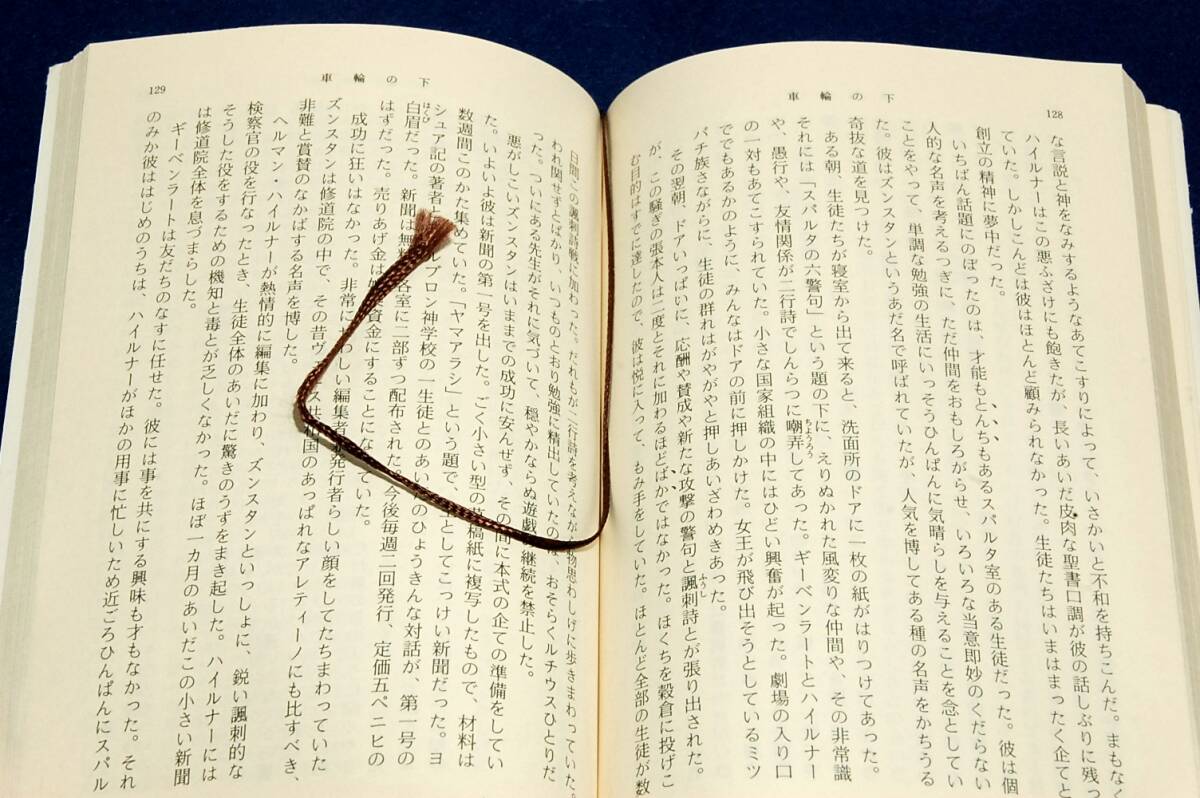 128
車輪の下
な言説と神をなみするようなあてこすりによって、いさかいと不和を持ちこんだ。まもなく
ハイルナーはこの悪ふざけにも飽きたが、長いあいだ皮肉な聖書口調が彼の話しぶりに残っ
ていた。しかしこんどは彼はほとんど顧みられなかった。生徒たちはいまはまったく企てと
創立の精神に夢中だった。
いちばん話題にのぼったのは、才能もとんちもあるスパルタ室のある生徒だった。彼は個
人的な名声を考えるつぎに、ただ仲間をおもしろがらせ、いろいろな当意即妙のくだらない
ことをやって、単調な勉強の生活にいっそうひんぱんに気晴らしを与えることを念としてい
た。彼はズンスタンというあだ名で呼ばれていたが、人気を博してある種の名声をかちうる
奇抜な道を見つけた。
ある朝、生徒たちが寝室から出て来ると、洗面所のドアに一枚の紙がはりつけてあった。
それには「スパルタの六警句」という題の下に、えりぬかれた風変りな仲間や、その非常識
や、愚行や、友情関係が二行詩でしんらつに嘲弄してあった。ギーベンラートとハイルナー
ちょうろう
の一対もあてこすられていた。小さな国家組織の中にはひどい興奮が起った。劇場の入り口
でもあるかのように、みんなはドアの前に押しかけた。女王が飛び出そうとしているミツ
バチ族さながらに、生徒の群れはがやがやと押しあいざわめきあった。
その翌朝、ドアいっぱいに、応酬や賛成や新たな攻撃の警句と諷刺詩とが張り出された。
ふうし
が、この騒ぎの張本人は二度とそれに加わるほどばかではなかった。ほくちを穀倉に投げこ
む目的はすでに達したので、彼は悦に入って、もみ手をしていた。ほとんど全部の生徒が数
129
車輪の下
日間この諷刺詩戦に加わった。だれもが二行詩を考えながら物思わしげに歩きまわっていた。
われ関せずとばかり、いつものとおり勉強に精出していたのは、おそらくルチウスひとりだ
った。ついにある先生がそれに気づいて、穏やかならぬ遊戯の継続を禁止した。
悪がしこいズンスタンはいままでの成功に安んぜず、その間に本式の企ての準備をしてい
た。いよいよ彼は新聞の第一号を出した。ごく小さい型の草稿紙に複写したもので、材料は
数週間このかた集めていた。「ヤマアラシ」という題で、主としてこっけい新聞だった。ヨ
シュア記の著者とルブロン神学校の一生徒とのあいだのひょうきんな対話が、第一号の
白眉だった。新聞は無料各室に二部ずつ配布された。今後毎週二回発行、定価五ペニヒの
はくび
はずだった。売りあげ金は資金にすることになっていた。
成功に狂いはなかった。非常にわしい編集者発行者らしい顔をしてたちまわっていた
ズンスタンは修道院の中で、その昔ヴス共和国のあっぱれなアレティーノにも比すべき、
非難と賞賛のなかばする名声を博した。
ヘルマン・ハイルナーが熱情的に編集に加わり、ズンスタンといっしょに、鋭い諷刺的な
検察官の役を行なったとき、生徒全体のあいだに驚きのうずをまき起した。ハイルナーには
そうした役をするための機知と毒とが乏しくなかった。ほぼ一カ月のあいだこの小さい新聞
は修道院全体を息づまらした。
ギーベンラートは友だちのなすに任せた。彼には事を共にする興味も才もなかった。それ
のみか彼ははじめのうちは、ハイルナーがほかの用事に忙しいため近ごろひんぱんにスパル